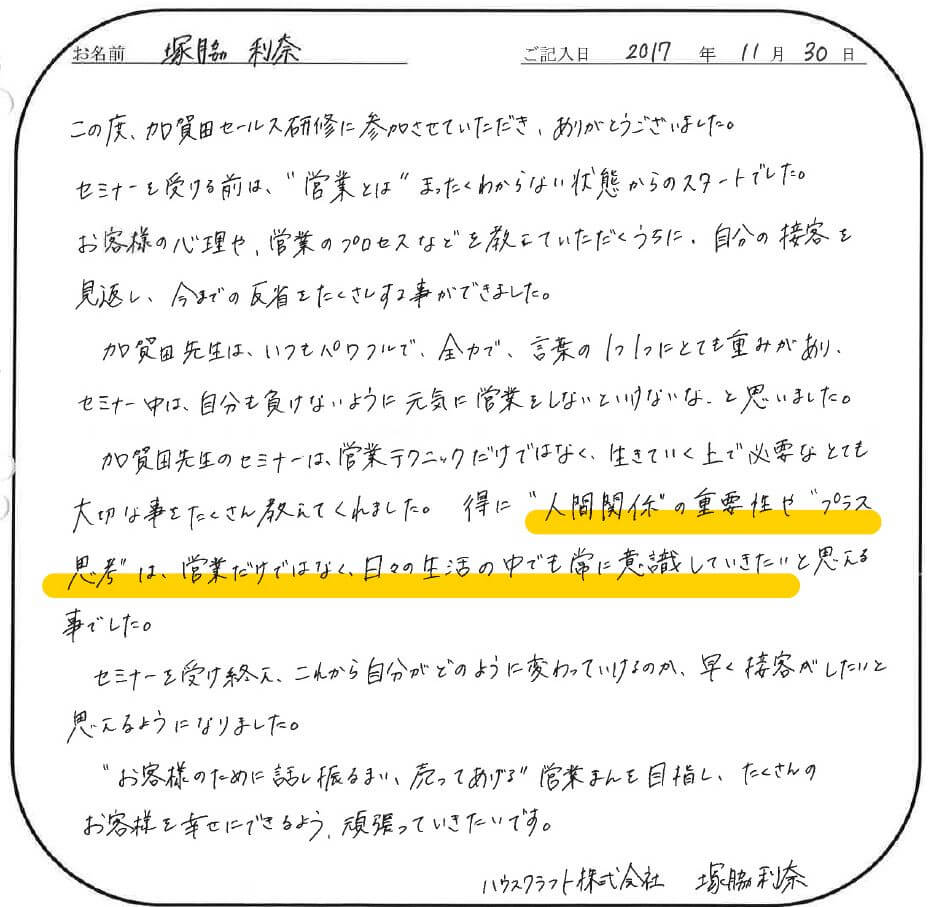 お名前 塚脇 利奈 ご記入日 2017 年 11 月 30 日
この度、加賀田セールス研修に参加させていただき、ありがとうございました。
セミナーを受ける前は、"営業とは"まったくわからない状態からのスタートでした。
お客様の心理や、営業のプロセスなどを教えていただくうちに、自分の接客を
見返し、今までの反省をたくさんする事ができました。
加賀田先生は、いつもパワフルで、全力で、言葉の1つ1つにとても重みがあり、
セミナー中は、自分も負けないように元気に営業をしないといけないな、と思いました。
加賀田先生のセミナーは、営業テクニックだけではなく、生きていく上で必要なとても
大切な事をたくさん教えてくれました。 得に"人間関係"の重要性や"プラス
思考"は、営業だけではなく、日々の生活の中でも常に意識していきたいと思える
事でした。
セミナーを受け終え、これから自分がどのように変わっていけるのか、早く接客がしたいと
思えるようになりました。
"お客様のために話し振るまい、売ってあげる"営業まんを目指し、たくさんの
お客様を幸せにできるよう、頑張っていきたいです。
ハウスクラフト株式会社 塚脇利奈